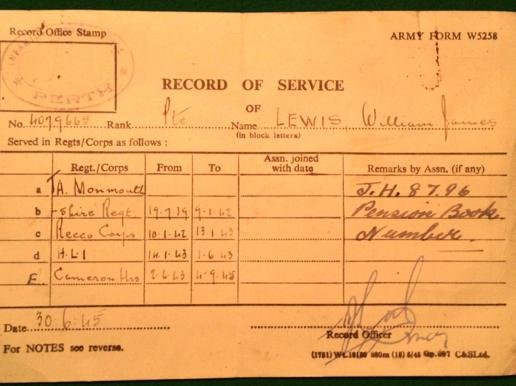 Record Office Stamp
ARMY FORM W5258
PERTH
RECORD OF SERVICE
OF
No. 4079665 Rank Pte Name LEWIS William James
(in block letters)
Served in Regts/Corps as follows :
Regt./Corps From To Assn. joined with date Remarks by Assn. (if any)
a TA. Monmouth J.H. 8796
b -shire Regt 19-7-39 9-1-42 Pension Book
c Recco Corps 10-1-42 13.1.43 Number.
d H.L.I 14.1.43 1-6-43
E. Cameron Hrs 2-6-43 4-9-45
Date 30.6.45
Record Officer
For NOTES see reverse.
C&SLtd.